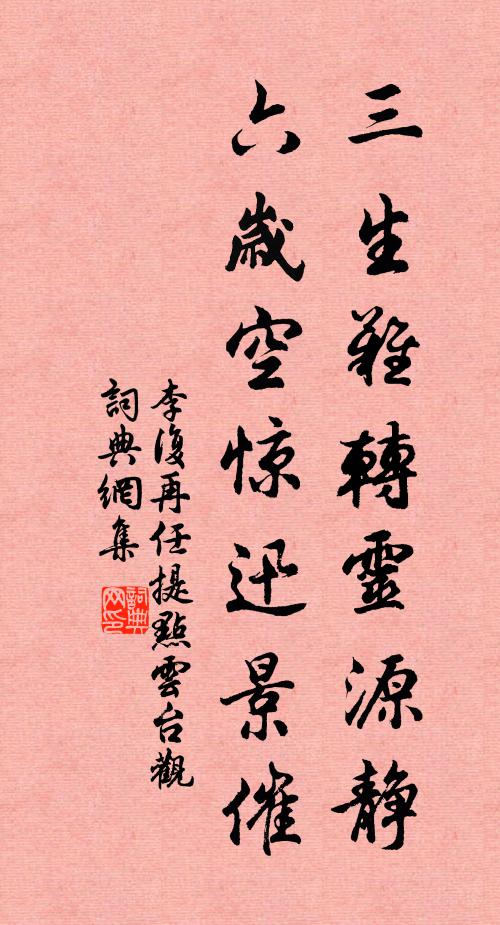 三生難轉靈源静
六歲空惊迅景催
李復再任提點雲台觀
詞典網集
詞典网印